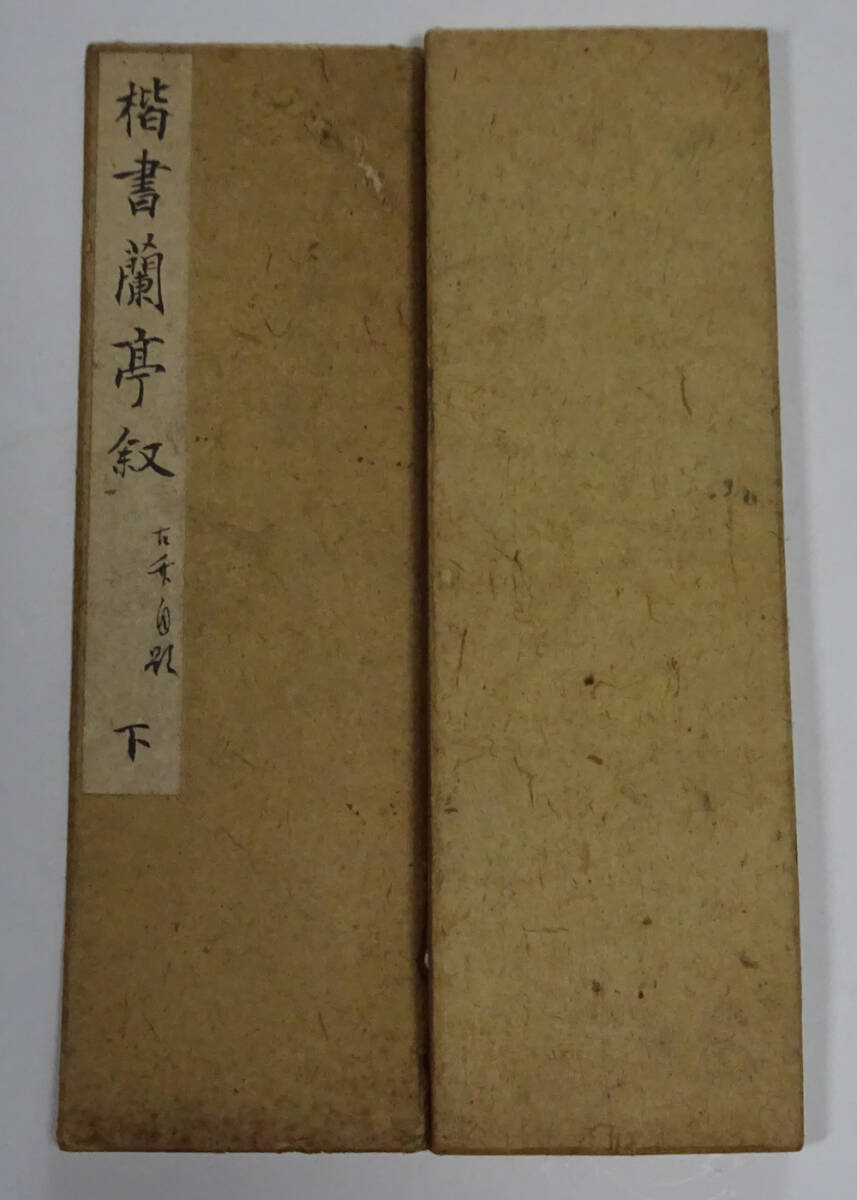 楷書蘭亭叙
古香自題
下